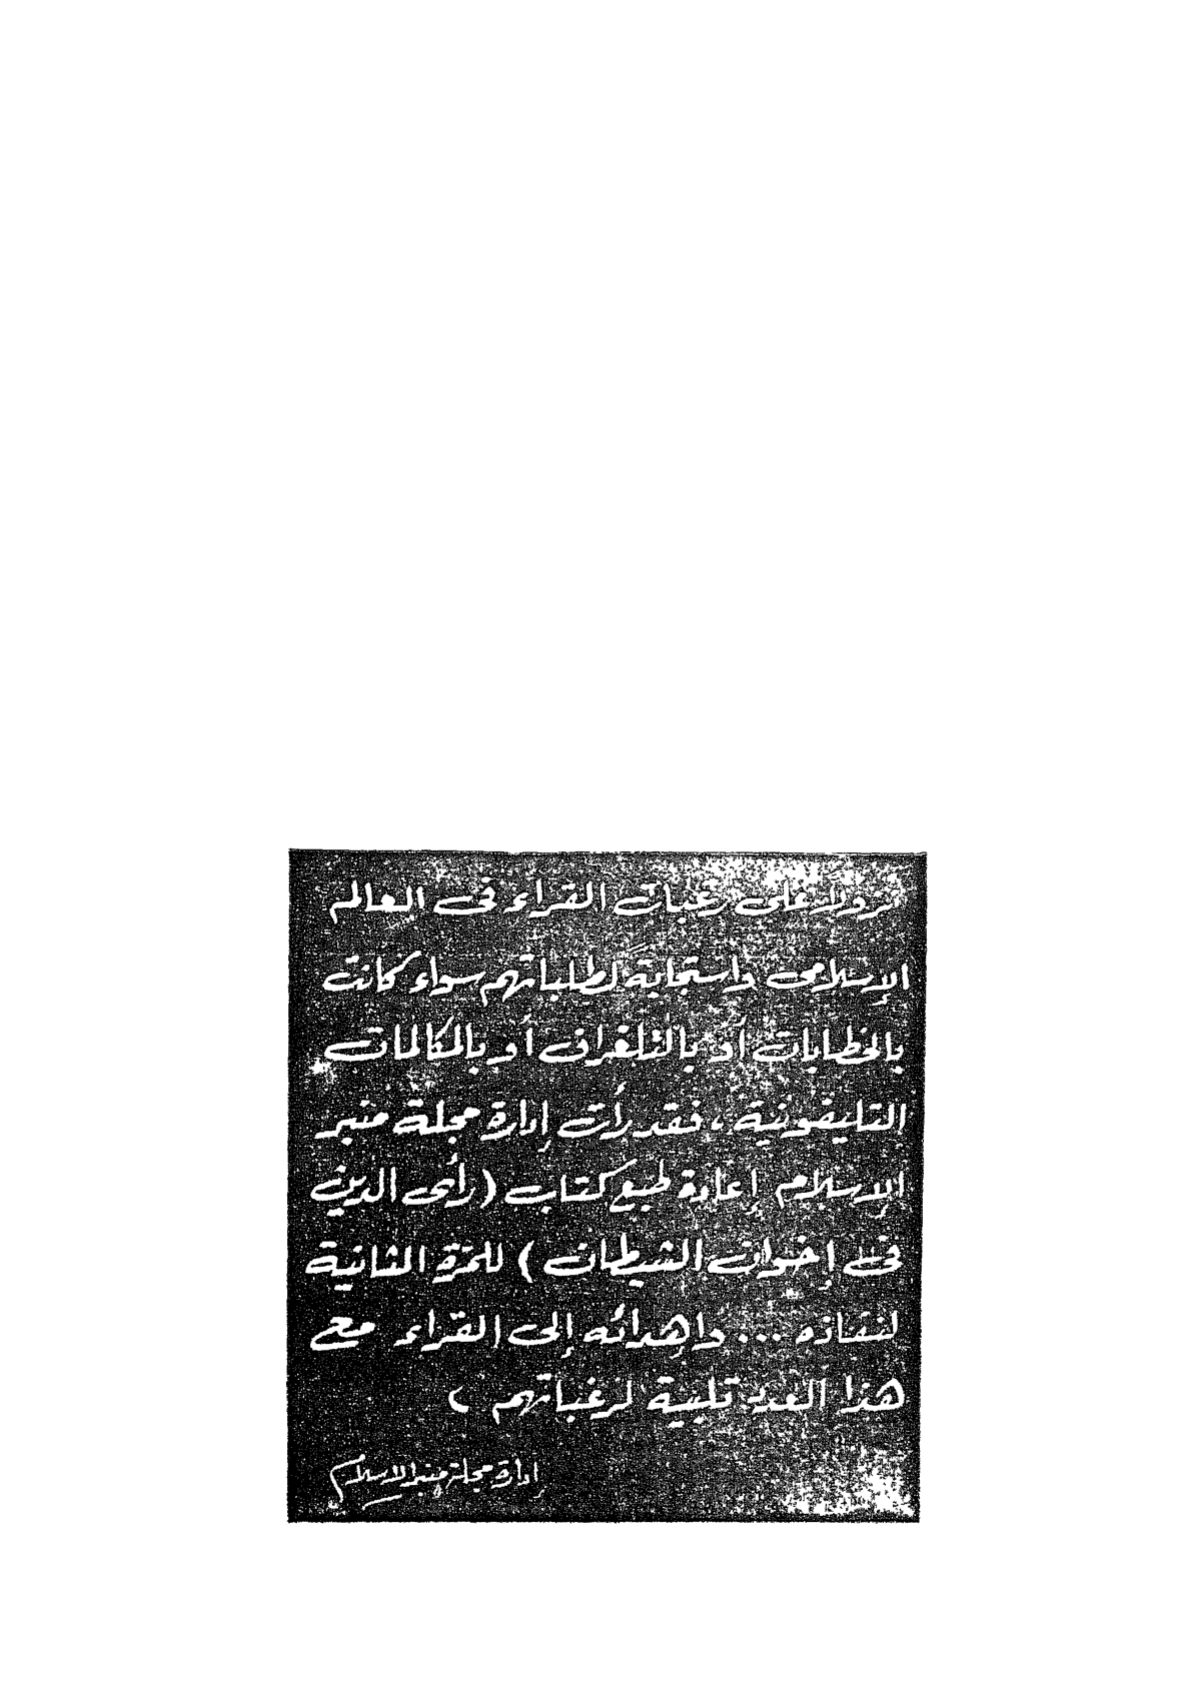 نزولاً على رغبات القراء فى العالم
الإسلامى واستجابةً لطلباتهم سواء كانت
بالخطابات أو بالتلغراف أو بالمكالمات
التليفونية ، فقد رأت إدارة مجلة منبر
الإسلام إعادة طبع كتاب (رأى الدين
فى إخوان الشيطان) للمرّة الثانية
لنفاذه ... وإهدائه إلى القراء مع
هذا العدد تلبية لرغباتهم ،
إدارة مجلة منبر الاسلام